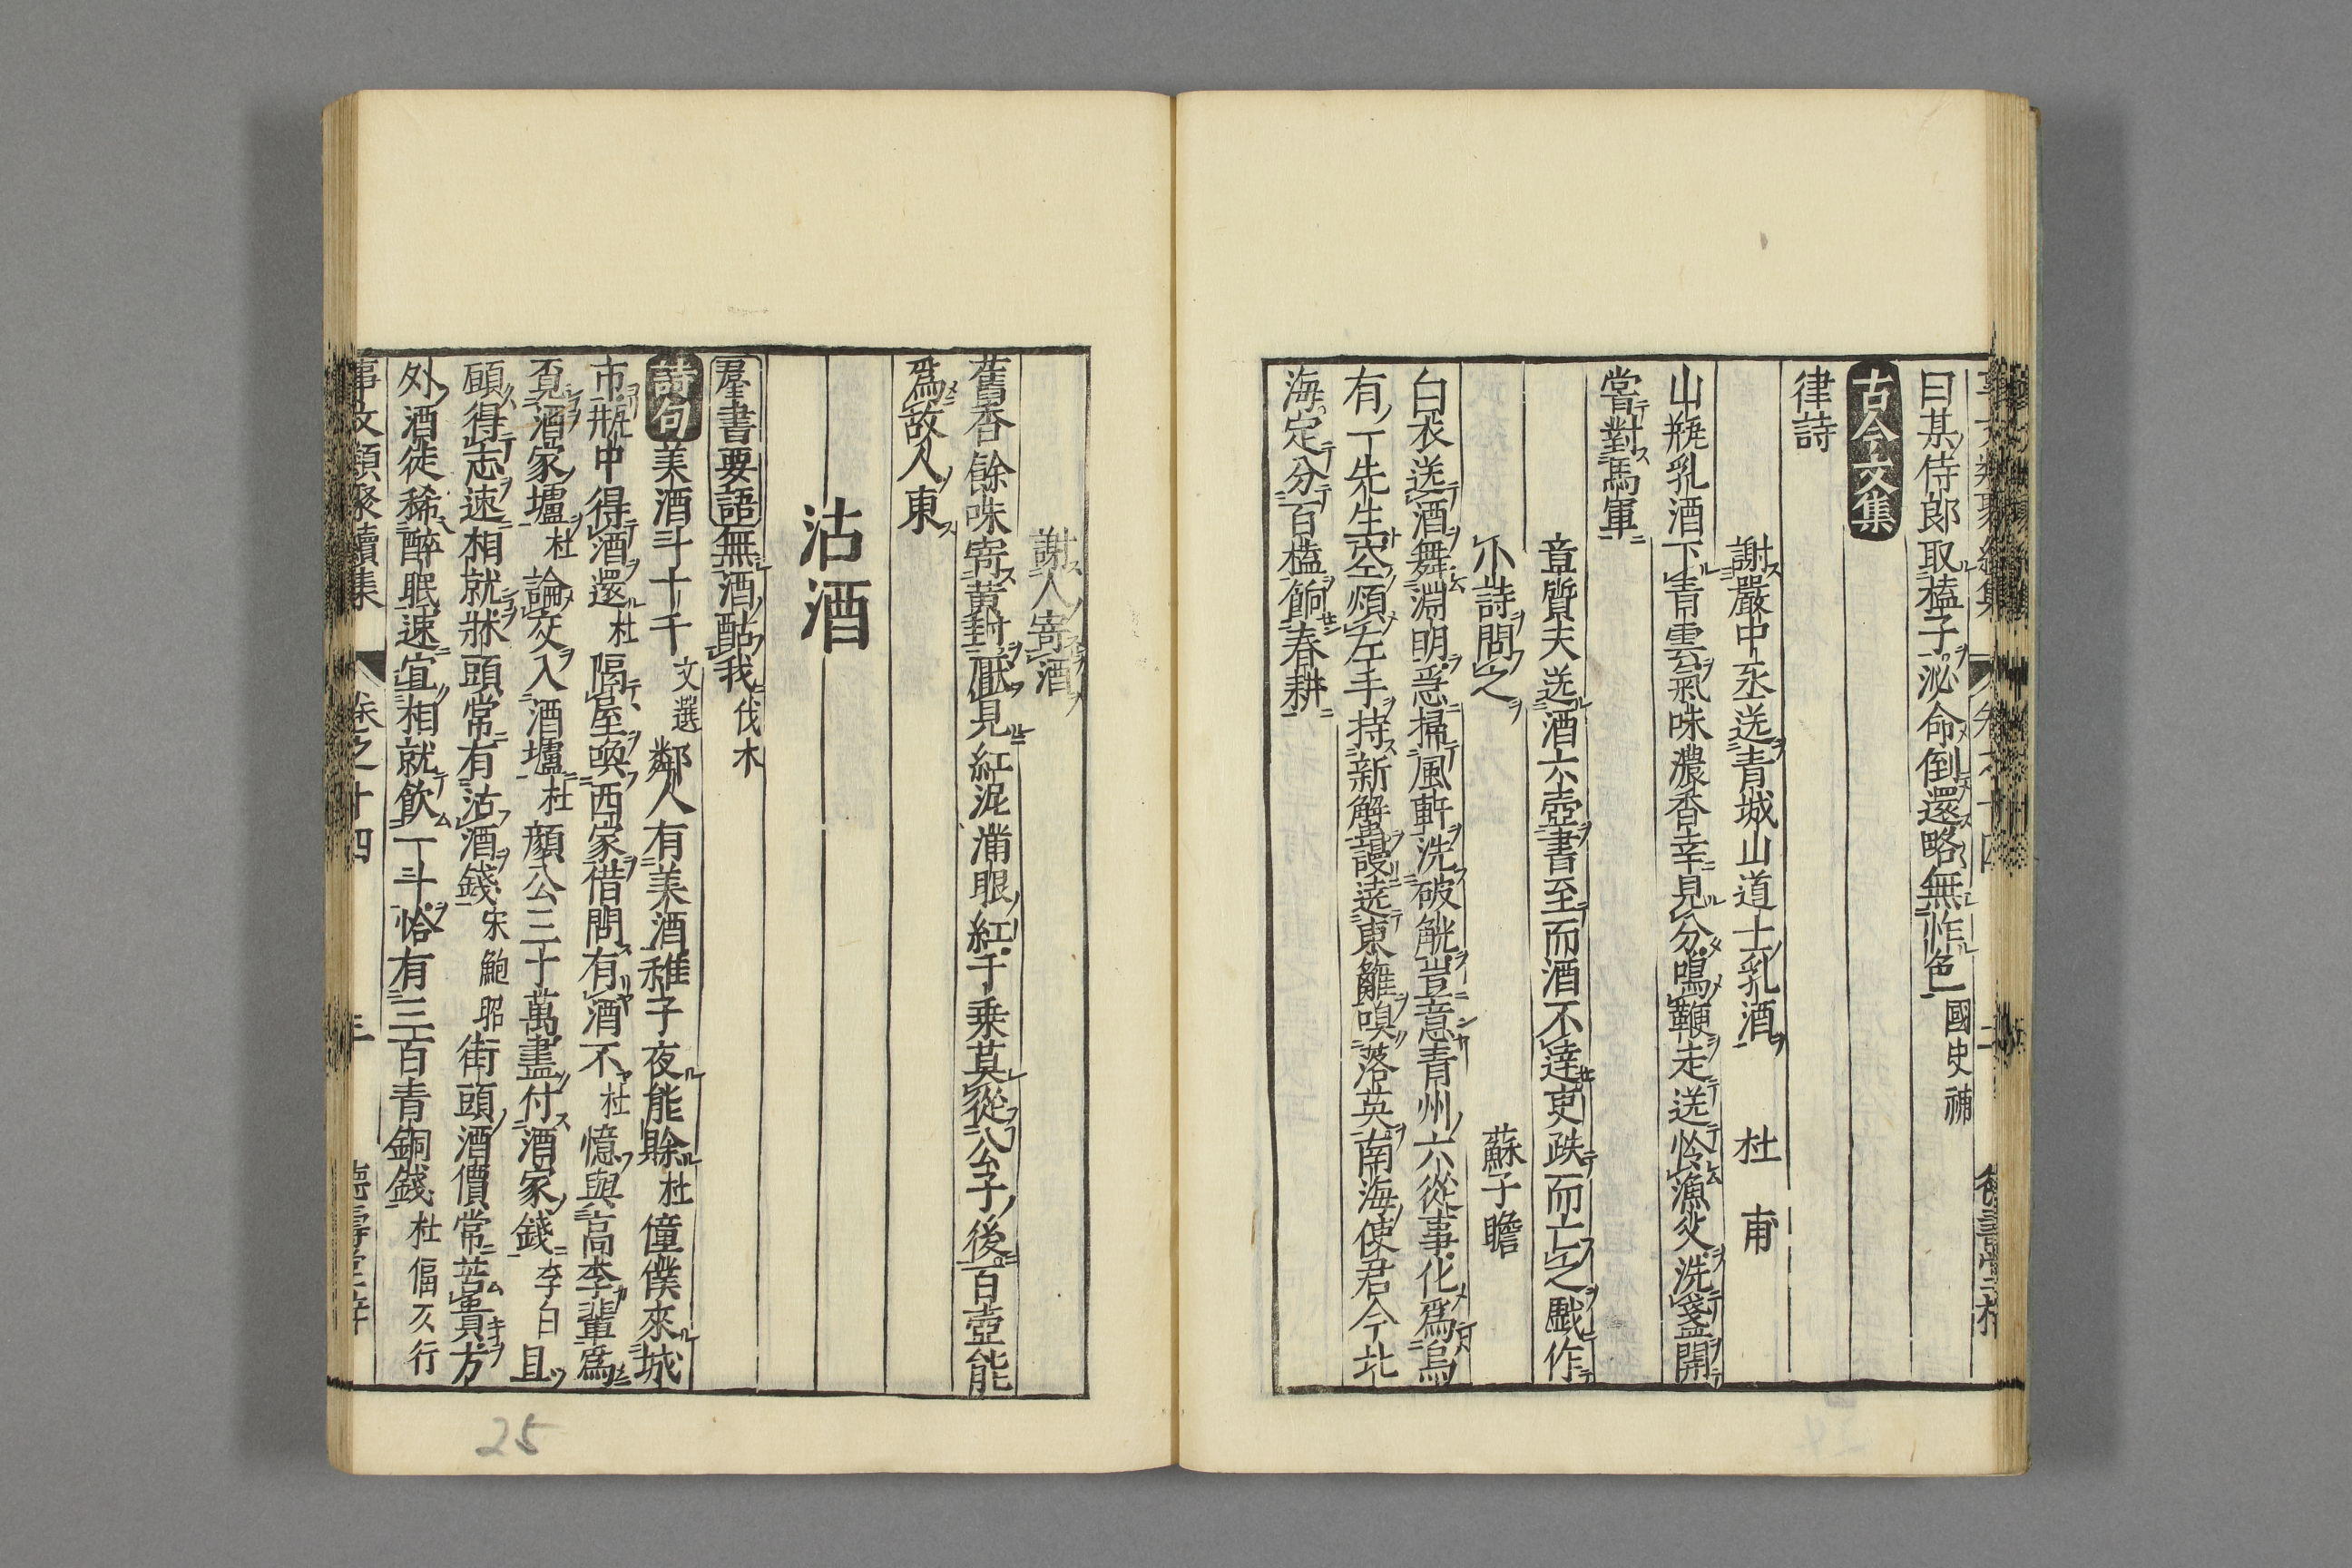 曰某侍郎取榼子泌命倒還略無怍色國史補
古今文集
律詩
謝嚴中丞送青城山道士乳酒 杜甫
山瓶乳酒下青雲氣味濃香幸見分鳴鞭走送怜漁父洗盞開
甞對馬軍
章質夫送酒六壺書至而酒不達吏跌而亡之戲作
小詩問之 蘇子瞻
白衣送酒舞淵明急掃風軒洗破觥豈意青州六從事化爲烏
有一先生空煩左手持新蟹謾遶東籬嗅落英南海使君今北
海定分百榼餉春耕
謝人寄酒
舊香餘味寄黃封厭見紅泥滿眼紅千乗莫從公子後百壺能
爲故人東
沽酒
羣書要語無酒酤我伐木
詩句美酒斗十千文選鄰人有美酒稚子夜能賖杜僮僕來城
市瓶中得酒還杜隔屋喚西家借問有酒不杜憶與高李輩爲
覓酒家壚杜論交入酒壚杜顏公三十萬盡付酒家錢李白且
願得志速相就牀頭常有沽酒錢宋鮑昭街頭酒價常苦貴方
外酒徒稀醉眠速宜相就飲一斗恰有三百青銅錢杜偪仄行
事文類聚續集 卷之十四 三
25